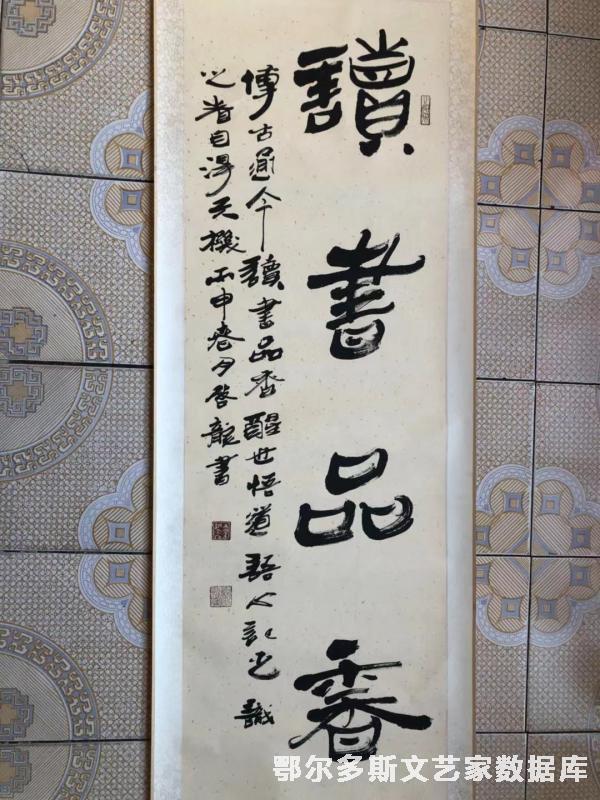 讀書品香
博古通今讀書品香醒世悟道語心記也識
之者自得天機丙申春月啓龍書
鄂尔多斯文艺家数据库